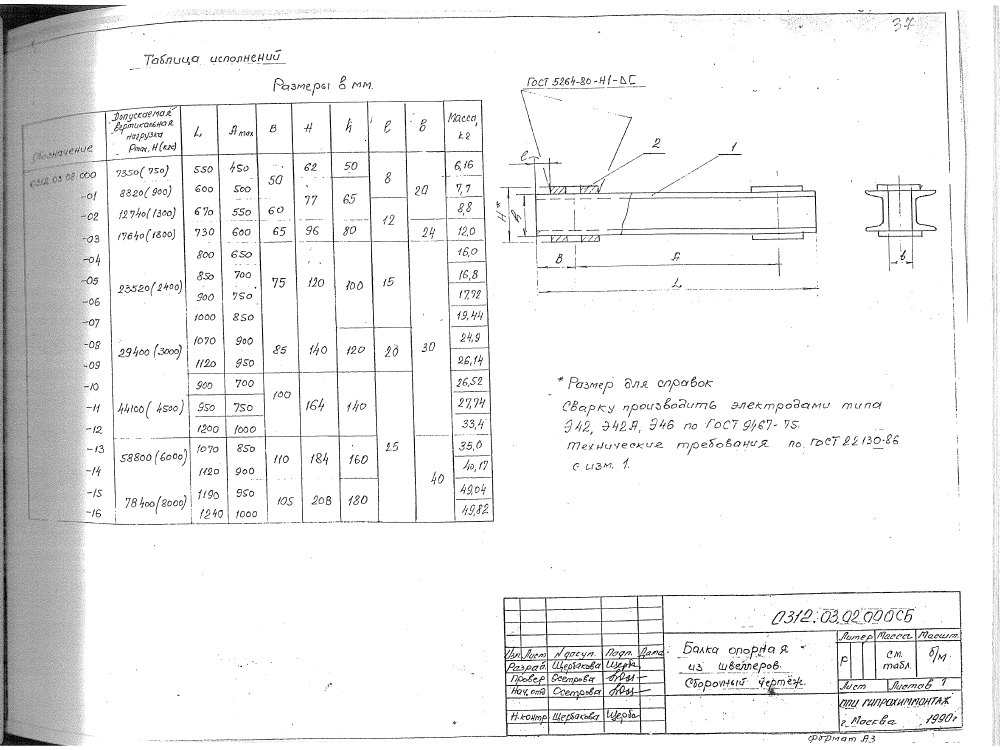 37
Таблица исполнений
Размеры в мм.
Обозначение | Допускаемая вертикальная нагрузка Pmax, Н (кгс) | L | Amax | B | H | h | ℓ | в | Масса, кг
0312.03.02.000 | 7350(750) | 550 | 450 | 50 | 62 | 50 | 8 | 20 | 6,16
-01 | 8820(900) | 600 | 500 | 77 | 65 | 7,7
-02 | 12740(1300) | 670 | 550 | 60 | 12 | 8,8
-03 | 17640(1800) | 730 | 600 | 65 | 96 | 80 | 24 | 12,0
-04 | 800 | 650 | 16,0
-05 | 23520(2400) | 850 | 700 | 75 | 120 | 100 | 15 | 16,8
-06 | 900 | 750 | 17,72
-07 | 1000 | 850 | 19,44
-08 | 29400(3000) | 1070 | 900 | 85 | 140 | 120 | 20 | 30 | 24,9
-09 | 1120 | 950 | 26,14
-10 | 900 | 700 | 100 | 26,52
-11 | 44100(4500) | 950 | 750 | 164 | 140 | 27,74
-12 | 1200 | 1000 | 33,4
-13 | 58800(6000) | 1070 | 850 | 110 | 184 | 160 | 25 | 35,0
-14 | 1120 | 900 | 40 | 40,17
-15 | 78400(8000) | 1190 | 950 | 105 | 208 | 180 | 49,04
-16 | 1240 | 1000 | 49,82
ГОСТ 5264-80-Н1-ΔГ
2
1
ℓ
H*
h
B
A
L
в
* Размер для справок
Сварку производить электродами типа
Э42, Э42А, Э46 по ГОСТ 9467-75.
Технические требования по ГОСТ 22130-86
с изм. 1.
0312.03.02.000СБ
Балка опорная
из швеллеров.
Сборочный чертёж.
Литер Масса Масшт.
Р см. табл. б/м
Лист Листов 1
ОПИ ГИПРОХИММОНТАЖ
г. Москва 1990г
Изм Лист N докум. Подп. Дата
Разраб Щербакова Щерба
Провер Осетрова
Нач.отд Осетрова
Н.контр Щербакова Щерба
Формат А3